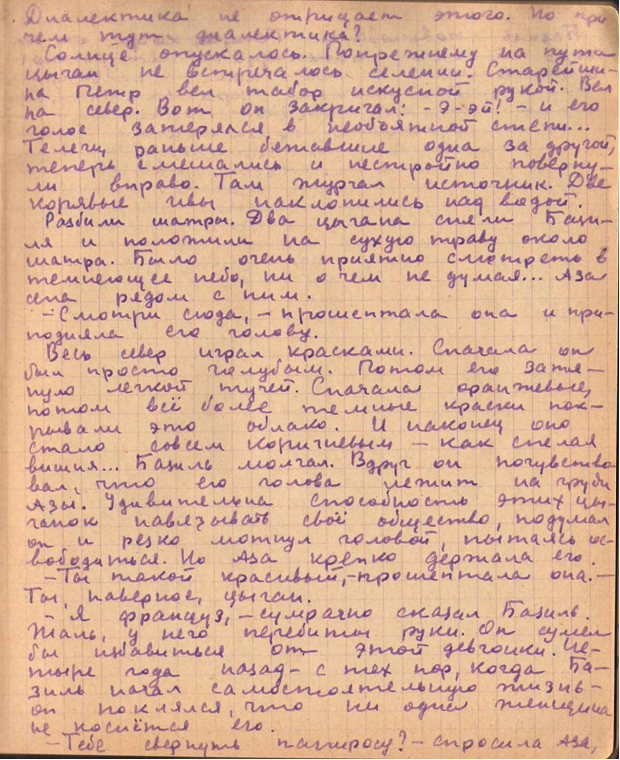 Диалектика не отрицает этого. Но при
чем тут диалектика?
Солнце опускалось. Попрежнему на пути
цыган не встречалось селений. Старейши-
на Петр вел табор искусной рукой. Вел
на север. Вот он закричал: - Э-эй! - и его
голос затерялся в необъятной степи...
Телеги, раньше бежавшие одна за другой,
теперь смешались и нестройно поверну-
ли вправо. Там журчал источник. Две
корявые ивы наклонились над водой.
Разбили шатры. Два цыгана сняли Бази-
ля и положили на сухую траву около
шатра. Было очень приятно смотреть в
темнеющее небо, ни о чем не думая... Аза
села рядом с ним.
- Смотри сюда, - прошептала она и при-
подняла его голову.
Весь север играл красками. Сначала он
был просто голубым. Потом его затя-
нуло легкой тучей. Сначала оранжевые,
потом всё более темные краски пок-
рывали это облако. И наконец оно
стало совсем коричневым - как спелая
вишня... Базиль молчал. Вдруг он почувство
вал, что его голова лежит на груди
Азы. Удивительна способность этих цы-
ганок навязывать своё общество, подумал
он и резко мотнул головой, пытаясь ос-
вободиться. Но Аза крепко держала его.
- Ты такой красивый, - прошептала она. -
Ты, наверное, цыган.
- Я француз, - сумрачно сказал Базиль.
Жаль, у него перебиты руки. Он сумел
бы избавиться от этой девчонки. Че-
тыре года назад - с тех пор, когда Ба-
зиль начал самостоятельную жизнь -
он поклялся, что ни одна женщина
не коснётся его.
- Тебе свернуть папиросу? - спросила Аза,